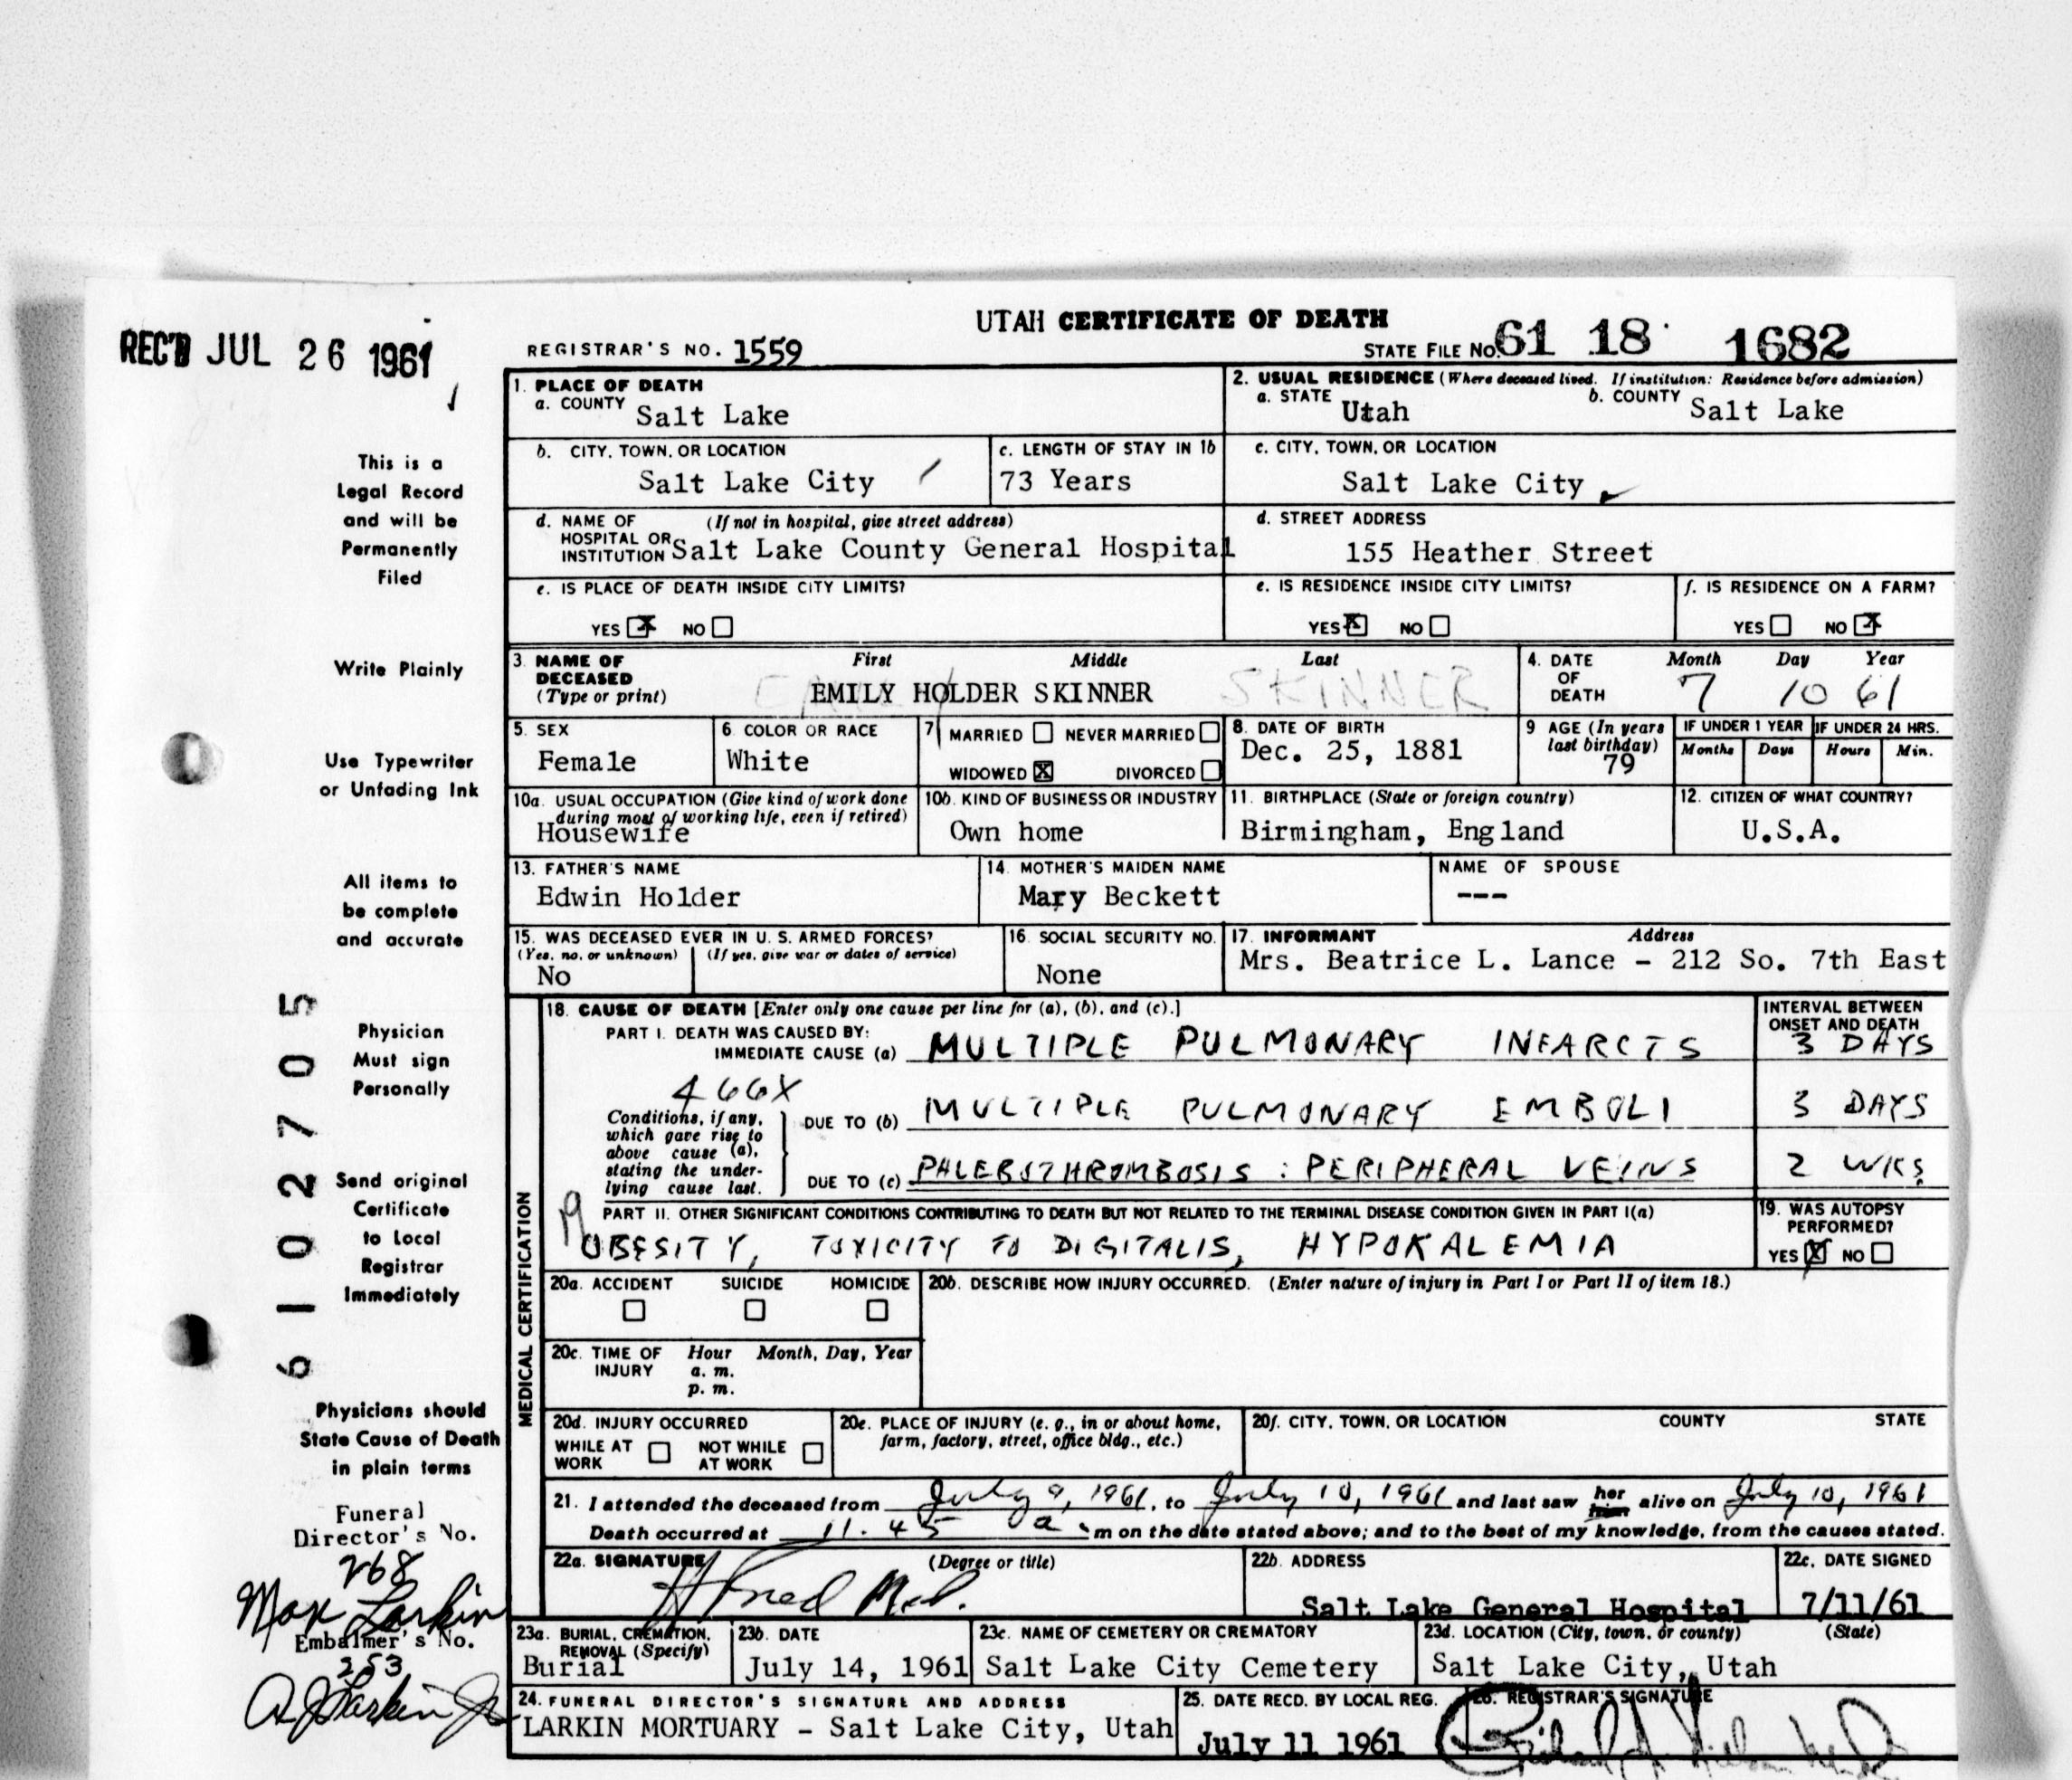 UTAH CERTIFICATE OF DEATH
REC'D JUL 26 1961
REGISTRAR'S NO. 1559
STATE FILE NO. 61 18 1682
1. PLACE OF DEATH
a. COUNTY Salt Lake
2. USUAL RESIDENCE (Where deceased lived. If institution: Residence before admission)
a. STATE Utah b. COUNTY Salt Lake
b. CITY, TOWN, OR LOCATION
Salt Lake City
c. LENGTH OF STAY IN 1b
73 Years
c. CITY, TOWN, OR LOCATION
Salt Lake City
d. NAME OF HOSPITAL OR INSTITUTION (If not in hospital, give street address)
Salt Lake County General Hospital
d. STREET ADDRESS
155 Heather Street
e. IS PLACE OF DEATH INSIDE CITY LIMITS?
YES X NO
e. IS RESIDENCE INSIDE CITY LIMITS?
YES X NO
f. IS RESIDENCE ON A FARM?
YES NO X
3. NAME OF DECEASED (Type or print)
First Middle Last
EMILY HOLDER SKINNER
SKINNER
4. DATE OF DEATH
Month Day Year
7 10 61
5. SEX
Female
6. COLOR OR RACE
White
7 MARRIED NEVER MARRIED
WIDOWED X DIVORCED
8. DATE OF BIRTH
Dec. 25, 1881
9 AGE (In years last birthday)
79
IF UNDER 1 YEAR
Months Days
IF UNDER 24 HRS.
Hours Min.
10a. USUAL OCCUPATION (Give kind of work done during most of working life, even if retired)
Housewife
10b. KIND OF BUSINESS OR INDUSTRY
Own home
11. BIRTHPLACE (State or foreign country)
Birmingham, England
12. CITIZEN OF WHAT COUNTRY?
U.S.A.
13. FATHER'S NAME
Edwin Holder
14. MOTHER'S MAIDEN NAME
Mary Beckett
NAME OF SPOUSE
---
15. WAS DECEASED EVER IN U. S. ARMED FORCES?
(Yes, no, or unknown) (If yes, give war or dates of service)
No
16. SOCIAL SECURITY NO.
None
17. INFORMANT Address
Mrs. Beatrice L. Lance - 212 So. 7th East
MEDICAL CERTIFICATION
18. CAUSE OF DEATH [Enter only one cause per line for (a), (b), and (c).]
INTERVAL BETWEEN ONSET AND DEATH
PART I. DEATH WAS CAUSED BY:
IMMEDIATE CAUSE (a) MULTIPLE PULMONARY INFARCTS 3 DAYS
466X
Conditions, if any, which gave rise to above cause (a), stating the underlying cause last.
DUE TO (b) MULTIPLE PULMONARY EMBOLI 3 DAYS
DUE TO (c) PHLEBOTHROMBOSIS : PERIPHERAL VEINS 2 WKS
PART II. OTHER SIGNIFICANT CONDITIONS CONTRIBUTING TO DEATH BUT NOT RELATED TO THE TERMINAL DISEASE CONDITION GIVEN IN PART I(a)
OBESITY, TOXICITY TO DIGITALIS, HYPOKALEMIA
19. WAS AUTOPSY PERFORMED?
YES X NO
20a. ACCIDENT SUICIDE HOMICIDE
20b. DESCRIBE HOW INJURY OCCURRED. (Enter nature of injury in Part I or Part II of item 18.)
20c. TIME OF INJURY Hour Month, Day, Year
a. m.
p. m.
20d. INJURY OCCURRED
WHILE AT WORK NOT WHILE AT WORK
20e. PLACE OF INJURY (e. g., in or about home, farm, factory, street, office bldg., etc.)
20f. CITY, TOWN, OR LOCATION COUNTY STATE
21. I attended the deceased from July 9, 1961, to July 10, 1961 and last saw her him alive on July 10, 1961
Death occurred at 11.45 a m on the date stated above; and to the best of my knowledge, from the causes stated.
22a. SIGNATURE (Degree or title)
22b. ADDRESS
Salt Lake General Hospital
22c. DATE SIGNED
7/11/61
23a. BURIAL, CREMATION, REMOVAL (Specify)
Burial
23b. DATE
July 14, 1961
23c. NAME OF CEMETERY OR CREMATORY
Salt Lake City Cemetery
23d. LOCATION (City, town, or county) (State)
Salt Lake City, Utah
24. FUNERAL DIRECTOR'S SIGNATURE AND ADDRESS
LARKIN MORTUARY - Salt Lake City, Utah
25. DATE RECD. BY LOCAL REG.
July 11 1961
26. REGISTRAR'S SIGNATURE
This is a
Legal Record
and will be
Permanently
Filed
Write Plainly
Use Typewriter
or Unfading Ink
All items to
be complete
and accurate
Physician
Must sign
Personally
Send original
Certificate
to Local
Registrar
Immediately
Physicians should
State Cause of Death
in plain terms
6102705
Funeral
Director's No.
268
Max Larkin
Embalmer's No.
253
A J Larkin Jr